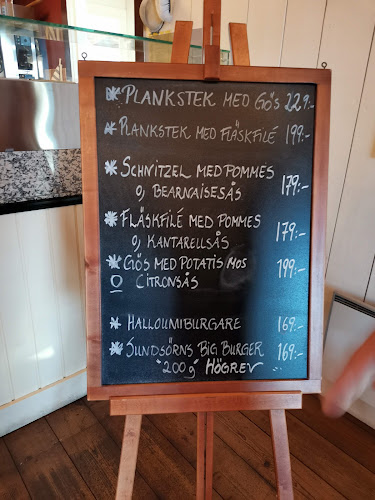 * PLANKSTEK MED GÖS 229:-
* PLANKSTEK MED FLÄSKFILÉ 199:-
* SCHNITZEL MED POMMES
O, BEARNAISESÅS 179:-
* FLÄSKFILÉ MED POMMES
O, KANTARELLSÅS 179:-
* GÖS MED POTATIS MOS 199:-
O CITRONSÅS
* HALLOUMIBURGARE 169:-
* SUNDSÖRNS BIG BURGER 169:-
"200g" HÖGREV